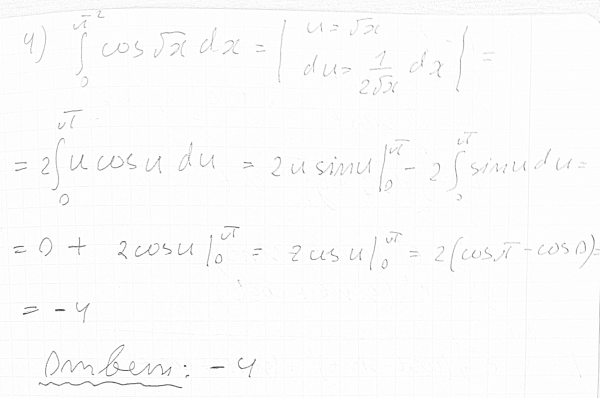 4) ∫₀^{π²} cos √x dx = { u = √x
du = 1/(2√x) dx } =
= 2 ∫₀^π u cos u du = 2u sin u |₀^π - 2 ∫₀^π sin u du =
= 0 + 2 cos u |₀^π = 2 cos u |₀^π = 2(cos π - cos 0) =
= -4
Ответ: -4